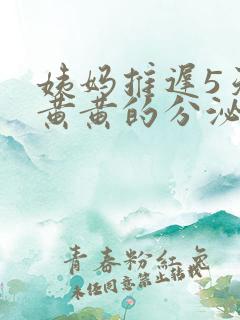 姨妈推迟5天
黄黄的分泌
青春粉红色
未经同意禁止转载